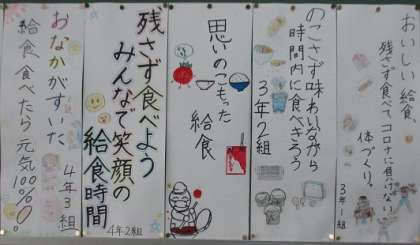 おいしい給食
残さず食べて コロナに負けない
体づくり。
3年1組
のこさず味わいながら
時間内に食べきろう
3年2組
思いのこもった
給食
残さず食べよう
みんなで笑顔の
給食時間
4年2組
おなかがすいた
給食食べたら元気100%!
4年3組